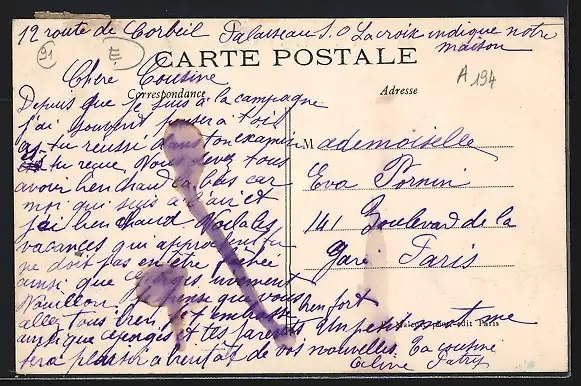 12 route de Corbeil Palaiseau S.O La croix indique notre
maison
91 E
CARTE POSTALE
A 194
Chère Cousine
Correspondance
Adresse
Depuis que je suis à la campagne
j'ai souvent pensé à toi
as tu réussi dans ton examen
es tu reçue Vous devez tous
avoir bien chaud la bas car
moi qui suis à l'air et
j'ai bien chaud Voilà les
vacances qui approchent tu
ne doit pas en être fâchée
ainsi que Georges
Je pense que vous
allez tous bien Je t'embrasse bien fort
ainsi que Georges et tes parents Un petit mot me
fera plaisir à bientôt de vos nouvelles Ta cousine
Céline
Mademoiselle
Eva Pornin
141 Boulevard de la
Gare Paris
edit Paris